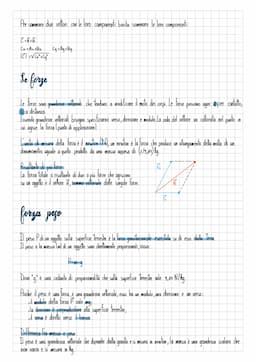 Per sommare due vettori con le loro componenti basta sommare le loro componenti:
C = A + B
Cx = Ax + Bx   Cy = Ay + By
Le forze
Le forze sono grandezze vettoriali che tendono a modificare il moto dei corpi. Le forze possono agire per contatto,
o a distanza.
Essendo grandezze vettoriali bisogna specificarne verso, direzione e modulo. La coda del vettore va collocata nel punto in
cui agisce la forza (punto di applicazione).
L'unità di misura della forza è il newton (N), un newton è la forza che produce un allungamento della molla di un
dinamometro uguale a quello prodotto da una massa appesa di
Risultante di forze
La forza totale o risultante di due o più forze che agiscono
su un oggetto è il vettore R, somma vettoriale delle singole forze.
forza peso
Il peso P di un oggetto sulla superficie terrestre è la forza gravitazionale esercitata su di esso dalla Terra.
Il peso e la massa (m) di un oggetto sono direttamente proporzionali, ossia:
P = m·g
Dove "g" è una costante di proporzionalità che sulla superficie terrestre vale
Poiché il peso è una forza, è una grandezza vettoriale, esso ha un modulo, una direzione e un verso:
il modulo della forza P vale mg,
la direzione è perpendicolare alla superficie terrestre,
il verso è diretto verso il basso.
Differenza tra massa e peso
Il peso è una grandezza vettoriale che dipende dalla gravità e si misura in newton, la massa è una grandezza scalare che
non varia e si misura in kg.